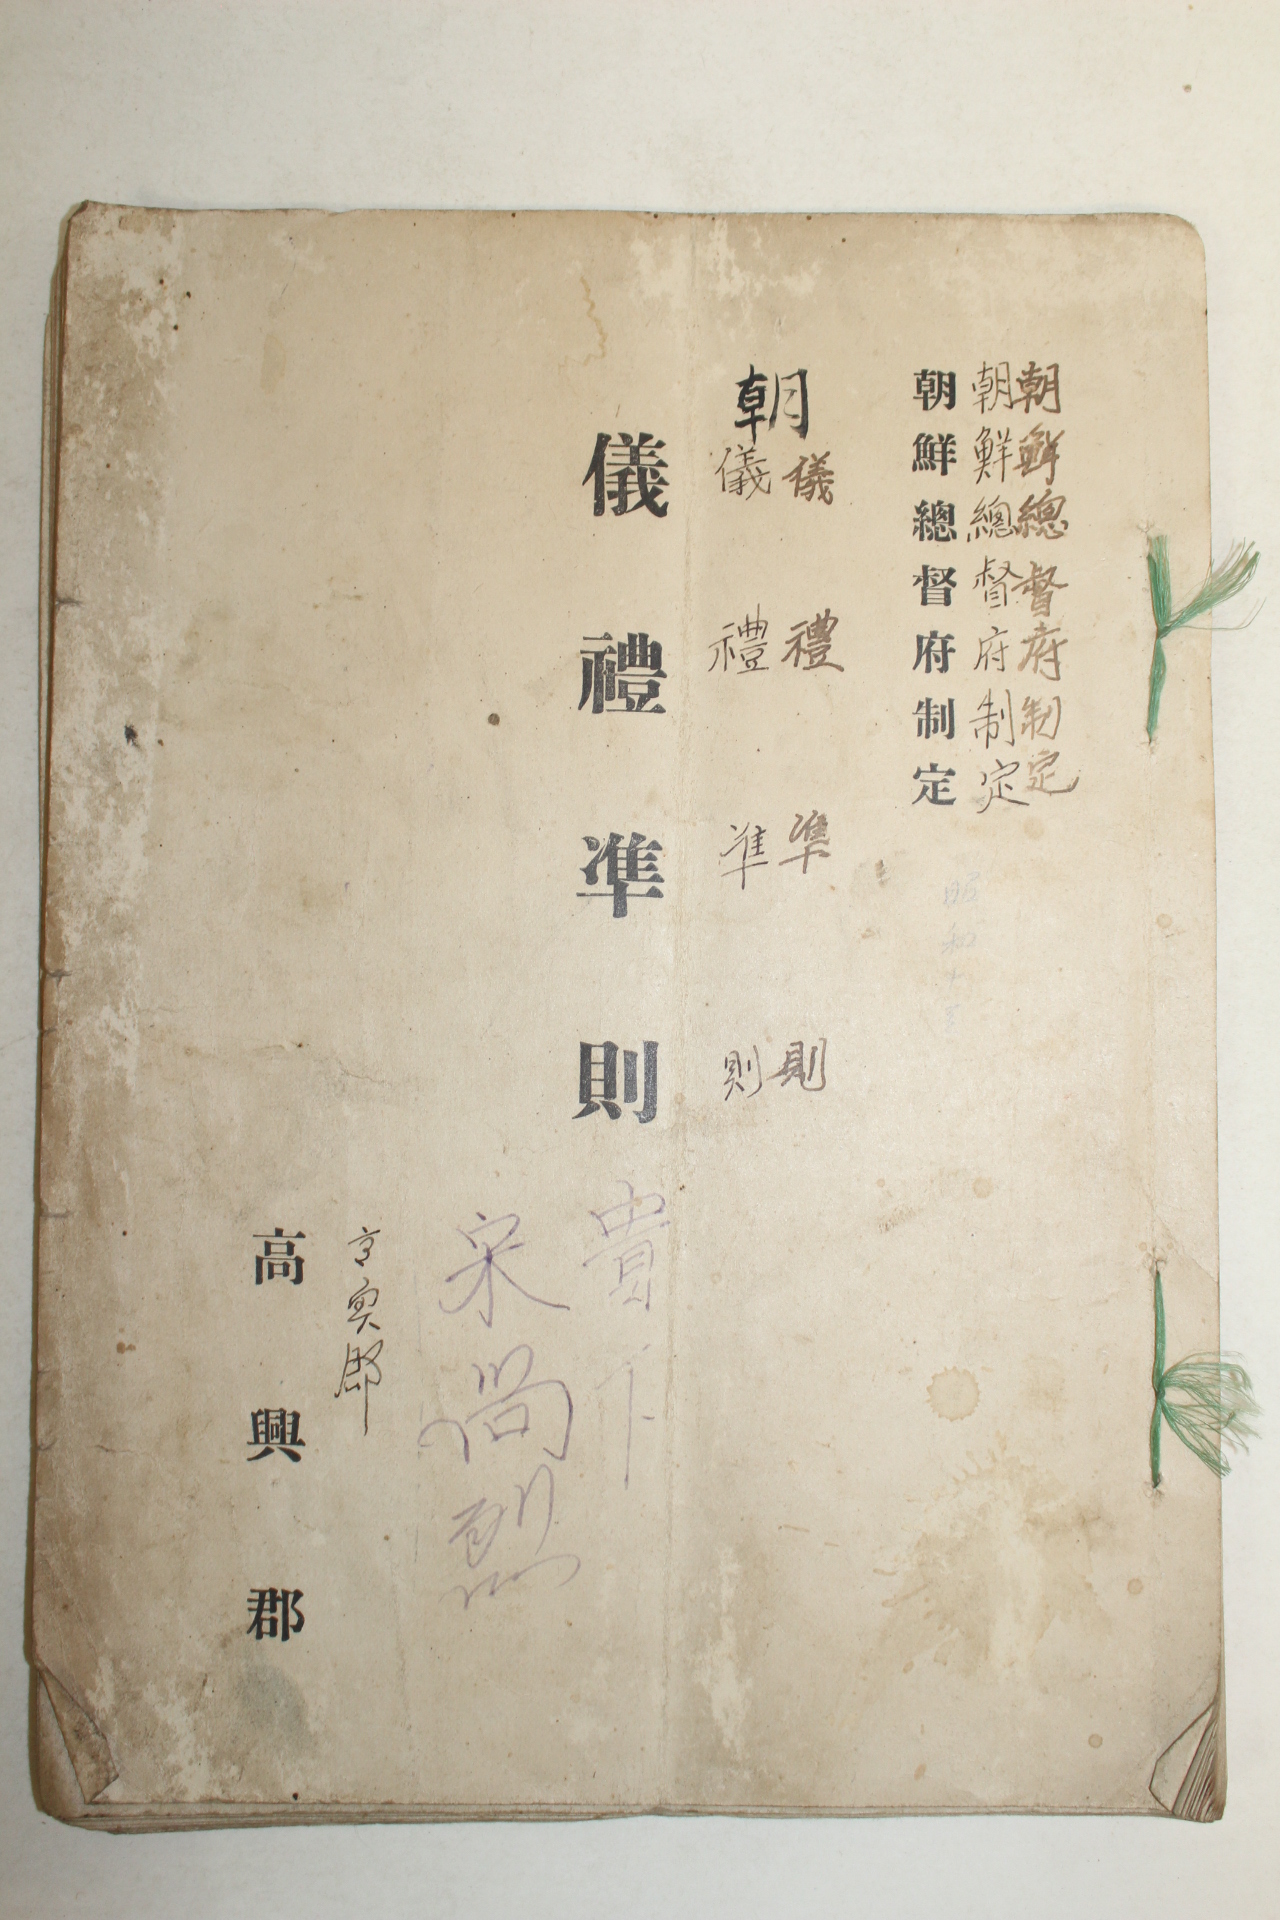 朝鮮總督府制定
朝鮮總督府制定
朝鮮總督府制定
昭和十
儀禮準則
朝
儀禮準則
儀禮準則
貴下
宋尚烈
高興郡